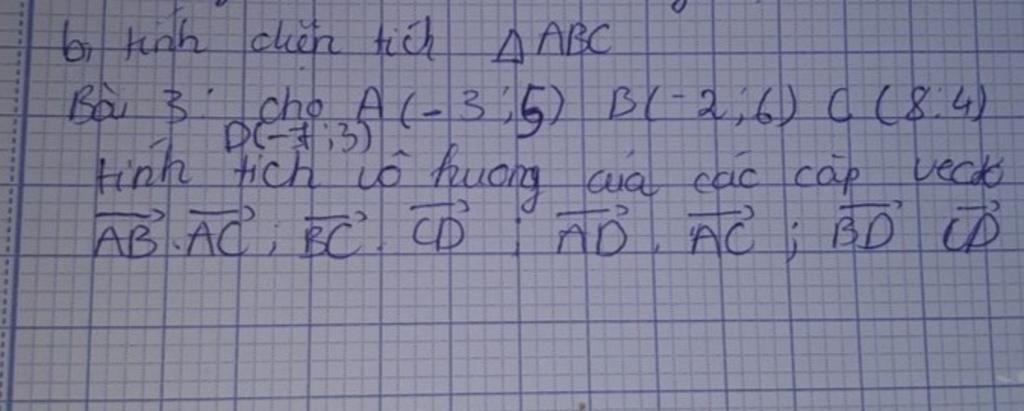 b, tính diện tích Δ ABC
Bài 3: cho A(-3;5) B(-2;6) C(8:4)
D(-7;3)
tính tích vô hướng của các cặp vecto
AB→.AC→; BC→.CD→; AD→.AC→; BD→ CD→